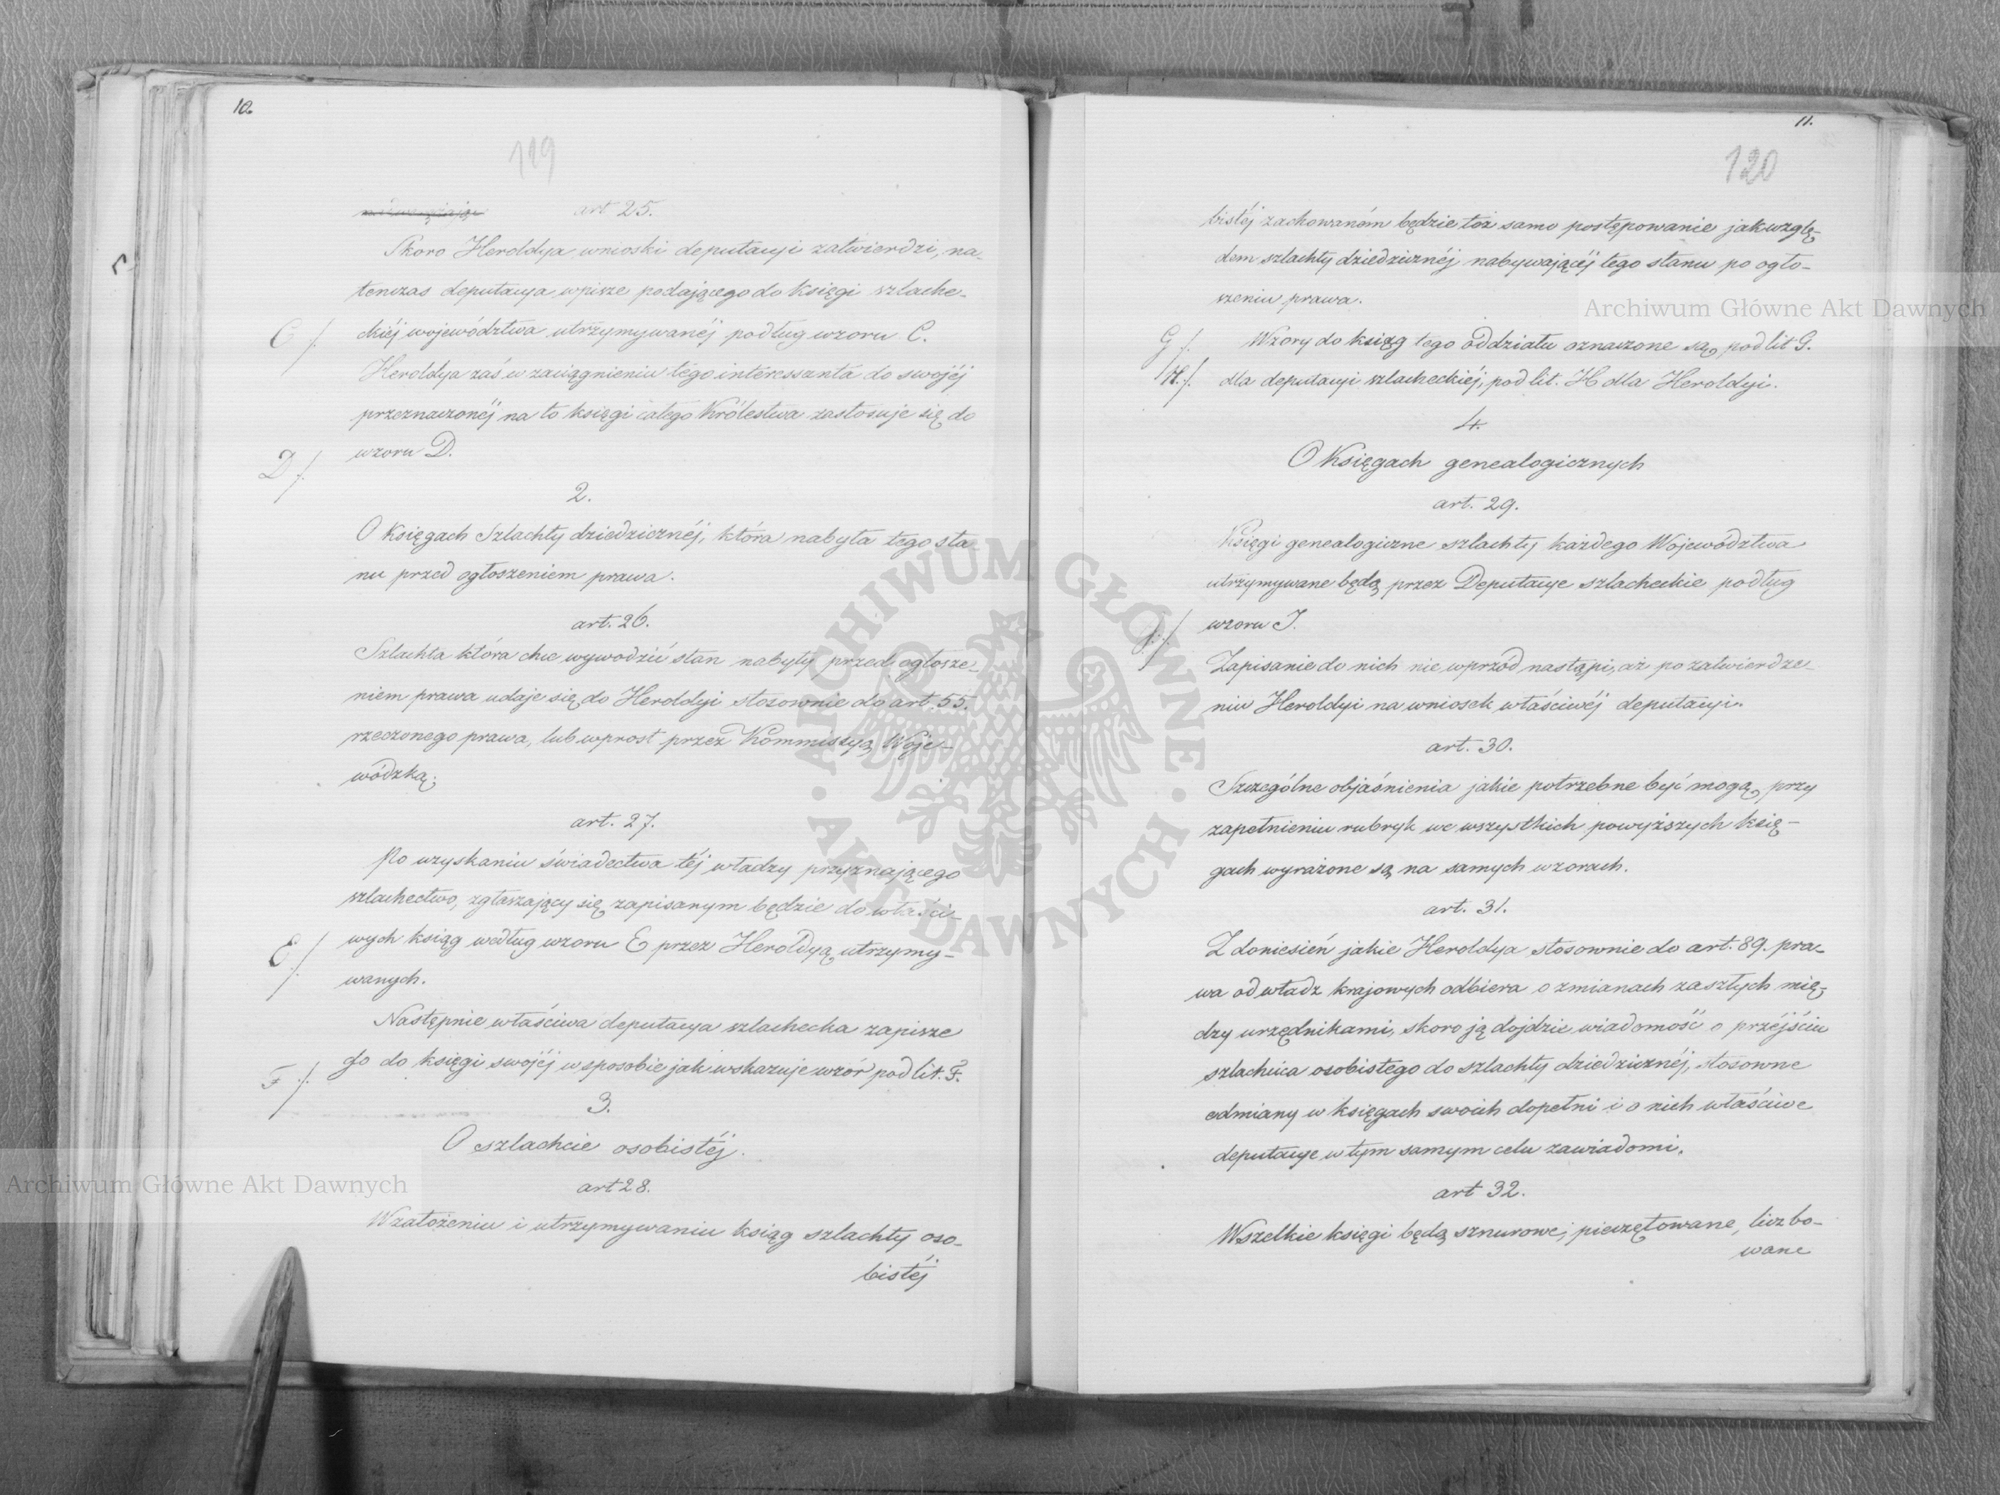 10.
119
art 25.
Skoro Heroldya wnioski deputacyi zatwierdzi, na-
tenczas deputacya wpisze podającego do księgi szlache-
C/. ckiéj województwa utrzymywanéj podług wzoru C.
Heroldya zaś w zaciągnieniu tégo interessanta do swojéj
przeznaczonéj na to księgi całego Królestwa zastosuje się do
D/. wzoru D.
2.
O Księgach Szlachty dziedzicznéj, która nabyła tego sta-
nu przed ogłoszeniem prawa.
art. 26.
Szlachta która chce wywodzić stan nabyty przed ogłosze-
niem prawa udaje się do Heroldyi stosownie do art. 55.
rzeczonego prawa, lub wprost przez Kommissyą Woje-
wódzką.
art. 27.
Po uzyskaniu świadectwa téj władzy przyznającego
szlachectwo, zgłaszający się zapisanym będzie do właści-
E/. wych ksiąg według wzoru E przez Heroldyą utrzymy-
wanych.
Następnie właściwa deputacya szlachecka zapisze
F/. go do księgi swojéj w sposobie jak wskazuje wzór pod lit. F.
3.
O szlachcie osobistéj.
art 28.
W założeniu i utrzymywaniu ksiąg szlachty oso-
bistéj
11.
120
bistéj zachowaném będzie toż samo postępowanie jak wzglę-
dem szlachty dziedzicznéj nabywającéj tego stanu po ogło-
szeniu prawa.
G/. Wzory do ksiąg tego oddziału oznaczone są, pod lit G.
H./. dla deputacyi szlacheckiéj, pod lit. H dla Heroldyi.
4.
O Księgach genealogicznych
art. 29.
Księgi genealogiczne szlachty każdego Województwa
utrzymywane będą przez Deputacye szlacheckie podług
J./. wzoru J.
Zapisanie do nich nie wprzód nastąpi, aż po zatwierdze-
niu Heroldyi na wniosek właściwéj deputacyi.
art. 30.
Szczególne objaśnienia jakie potrzebne być mogą, przy
zapełnieniu rubryk we wszystkich powyższych księ-
gach wyrażone są na samych wzorach.
art. 31.
Z doniesień jakie Heroldya stosownie do art. 89. pra-
wa od władz krajowych odbiera o zmianach zaszłych mię-
dzy urzędnikami, skoro ją dojdzie wiadomość o przéjściu
szlachcica osobistego do szlachty dziedzicznéj, stosowne
odmiany w księgach swoich dopełni i o nich właściwe
deputacye w tym samym celu zawiadomi.
art 32.
Wszelkie księgi będą sznurowe, pieczętowane, liczbo-
wane
Archiwum Główne Akt Dawnych
Archiwum Główne Akt Dawnych
ARCHIWUM GŁÓWNE · AKT DAWNYCH ·